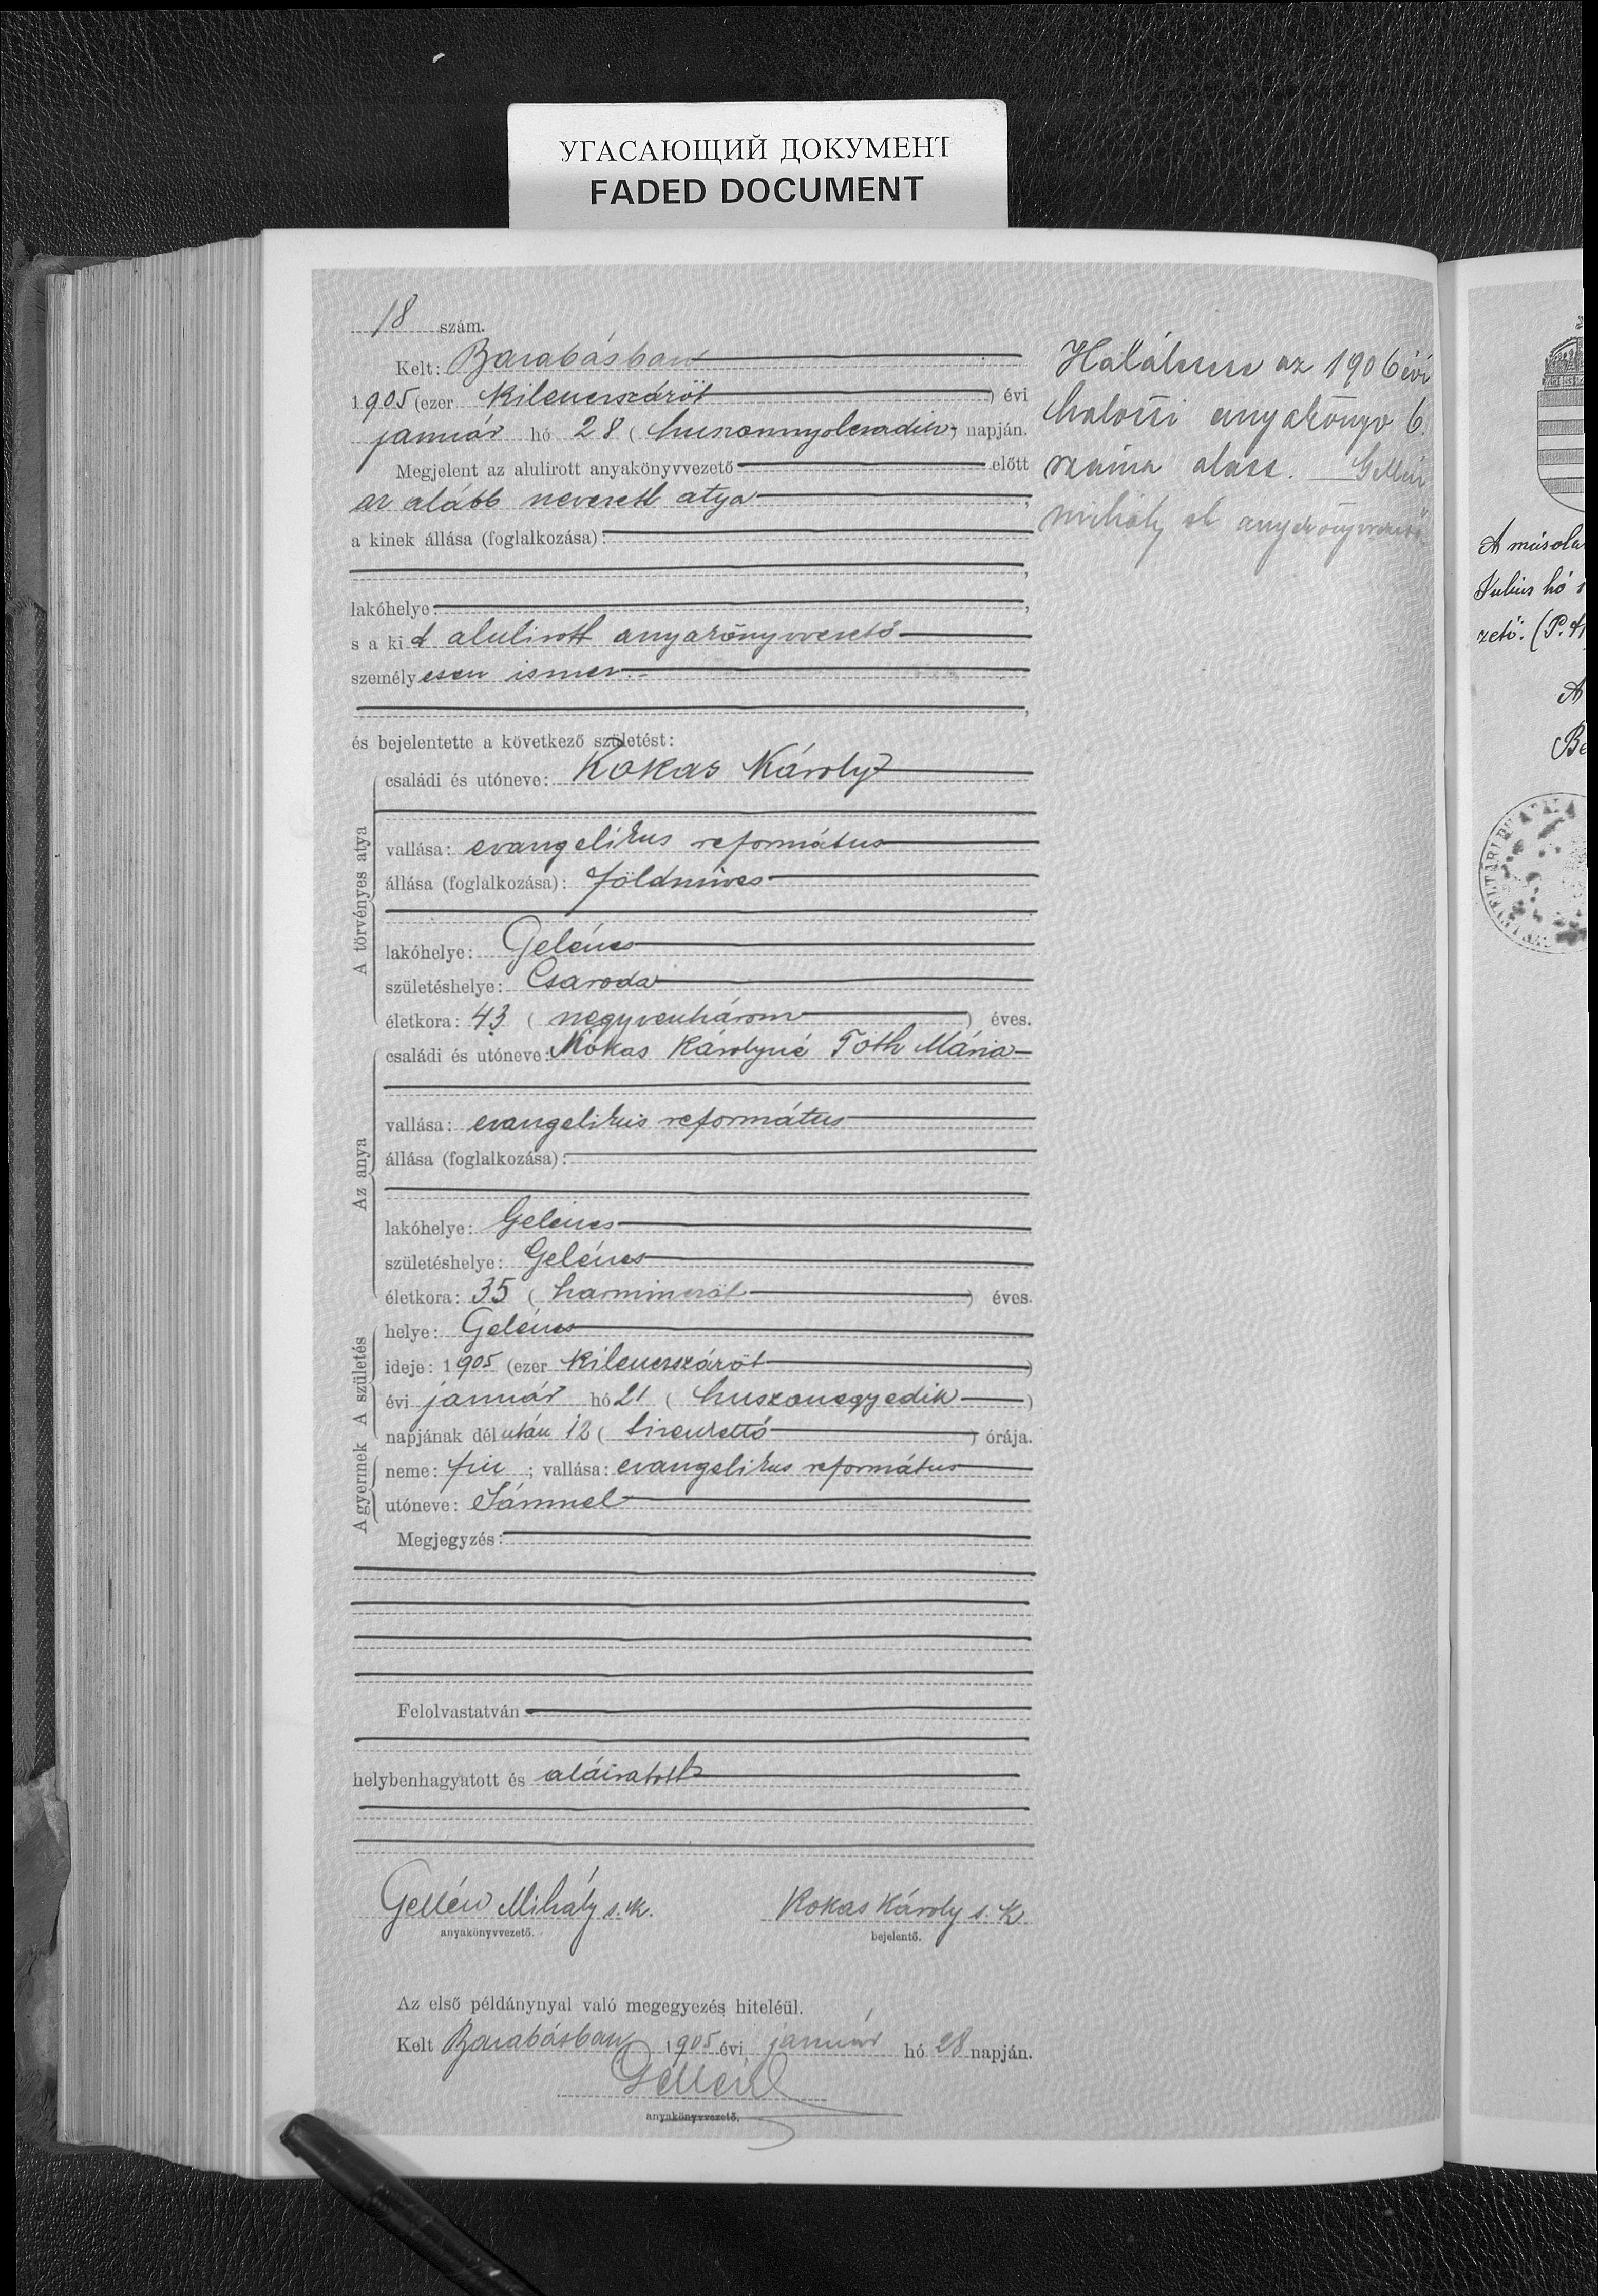 УГАСАЮЩИЙ ДОКУМЕНТ
FADED DOCUMENT
18 szám.
Kelt: Barabásban
1905 (ezer kilenczszázöt) évi
január hó 28 (huszonnyolczadik) napján.
Megjelent az alulirott anyakönyvvezető előtt
az alább nevezett atya,
a kinek állása (foglalkozása):
lakóhelye:
s a kit alulirott anyakönyvvezető
személyesen ismer.
és bejelentette a következő születést:
A törvényes atya
családi és utóneve: Kokas Károly
vallása: evangelikus református
állása (foglalkozása): földmives
lakóhelye: Gelénes
születéshelye: Csaroda
életkora: 43 (negyvenhárom) éves.
Az anya
családi és utóneve: Kokas Károlyné Tóth Mária
vallása: evangelikus református
állása (foglalkozása):
lakóhelye: Gelénes
születéshelye: Gelénes
életkora: 35 (harminczöt) éves.
A születés
helye: Gelénes
ideje: 1905 (ezer kilenczszázöt)
évi január hó 21 (huszonegyedik)
napjának délután 12 (tizenkettő) órája.
A gyermek
neme: fiu; vallása: evangelikus református
utóneve: Sámuel
Megjegyzés:
Felolvastatván
helybenhagyatott és aláiratott
Gellén Mihály s. k. Kokas Károly s. k.
anyakönyvvezető. bejelentő.
Az első példánynyal való megegyezés hiteléül.
Kelt Barabásban 1905 évi január hó 28 napján.
Gellén
anyakönyvvezető.
az 1906 évi
halotti anyakönyv 6.
száma alatt. Gellén
Mihály anyakönyvvezető
A másola
Julius hó
zető. (P.
A
Be